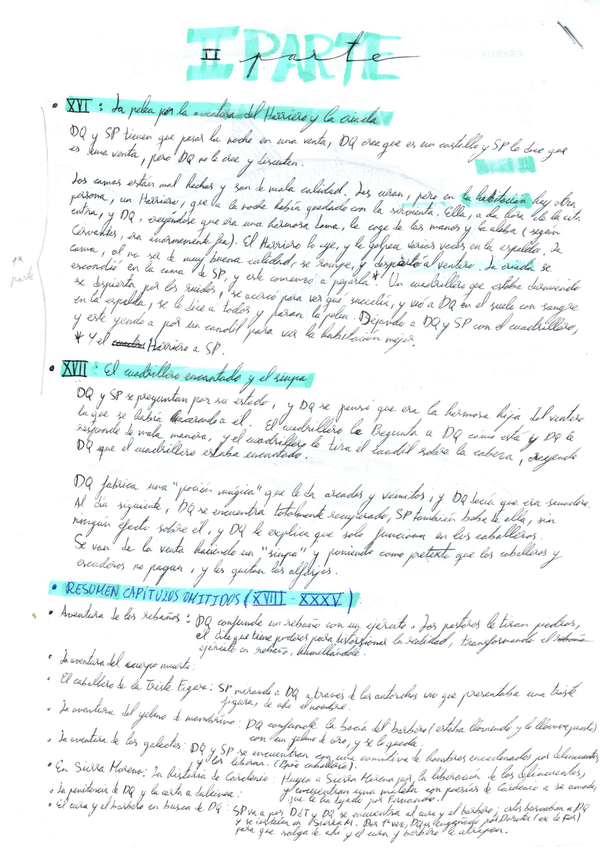 II PARTE
II parte
• XVI: La pelea por la aventura del Harriero y la criada
DQ y SP tienen que pasar la noche en una venta, DQ cree que es un castillo y SP le dice que
es una venta, pero DQ no le cree y discuten.
Las camas están mal hechas y son de mala calidad. Las curan, pero en la habitación hay otra
persona, un Harriero, que a la noche había quedado con la sirvienta. Ella, a la hora de la cita
entra, y DQ, creyéndose que era una hermosa dama, le coge de las manos y la alaba (según
Cervantes, era enormemente fea). El Harriero lo oye, y le golpea varias veces en la espalda. La
cama, al no ser de muy buena calidad, se rompe, y despierta al ventero. La criada se
escondió en la cama de SP, y este comenzó a pegarla.* Un cuadrillero que estaba durmiendo
se despierta por los ruidos, se acercó para ver que sucedía, y vió a DQ en el suelo con sangre
en la espalda, se le dice a todos y paran la pelea. Dejando a DQ y SP con el cuadrillero,
y este yendo a por un candil para ver la habitación mejor.
* Y el Harriero a SP.
1ª
parte
• XVII: El cuadrillero encantado y el sinpa
DQ y SP se preguntan por su estado, y DQ se pensó que era la hermosa hija del ventero
la que se había acercado a él. El cuadrillero le pregunta a DQ cómo está y DQ le
responde de mala manera, y el cuadrillero le tira el candil sobre la cabeza, creyendo
DQ que el cuadrillero estaba encantado.
DQ fabrica una "poción mágica" que le da arcadas y vómitos, y DQ decía que era sanadora.
Al día siguiente, DQ se encuentra totalmente recuperado, SP también bebe de ella, sin
ningún efecto sobre él, y DQ le explica que solo funciona en los caballeros.
Se van de la venta haciendo un "sinpa" y poniendo como pretexto que los caballeros y
escuderos no pagan, y les quitan las alforjas.
• RESUMEN CAPÍTULOS OMITIDOS (XVIII - XXXV)
• Aventura de los rebaños: DQ confunde un rebaño con un ejército. Los pastores le tiran piedras,
el cree que tiene poderes para distorsionar la realidad, transformando el
ejército en rebaño, humillándole.
• La aventura del cuerpo muerto:
• El caballero de la Triste Figura: SP mirando a DQ a través de las antorchas vio que presentaba una triste
figura, de ahí el nombre.
• La aventura del yelmo de mambrino: DQ confunde la bacía del barbero (estaba lloviendo y la llevaba puesta)
con un yelmo de oro, y se lo queda.
• La aventura de los galeotes: DQ y SP se encuentran con una comitiva de hombres encadenados por delincuentes
y los liberan. (Ginés caballero).
• En Sierra Morena: La historia de Cardenio: Huyen a Sierra Morena por la liberación de los delincuentes,
• La penitencia de DQ y la carta a dulcinea: y encuentran una maleta con poesías de Cardenio a su amada,
que le ha dejado por Fernando.
• El cura y el barbero en busca de DQ: SP va a por DdT y DQ se encuentra al cura y al barbero; estos buscaban a DQ
y se instalan en Sierra M. Por 1ª vez, DQ es engañado por Dorotea (ex de Fer)
para que salga de ahí y el cura y barbero le atrapen.